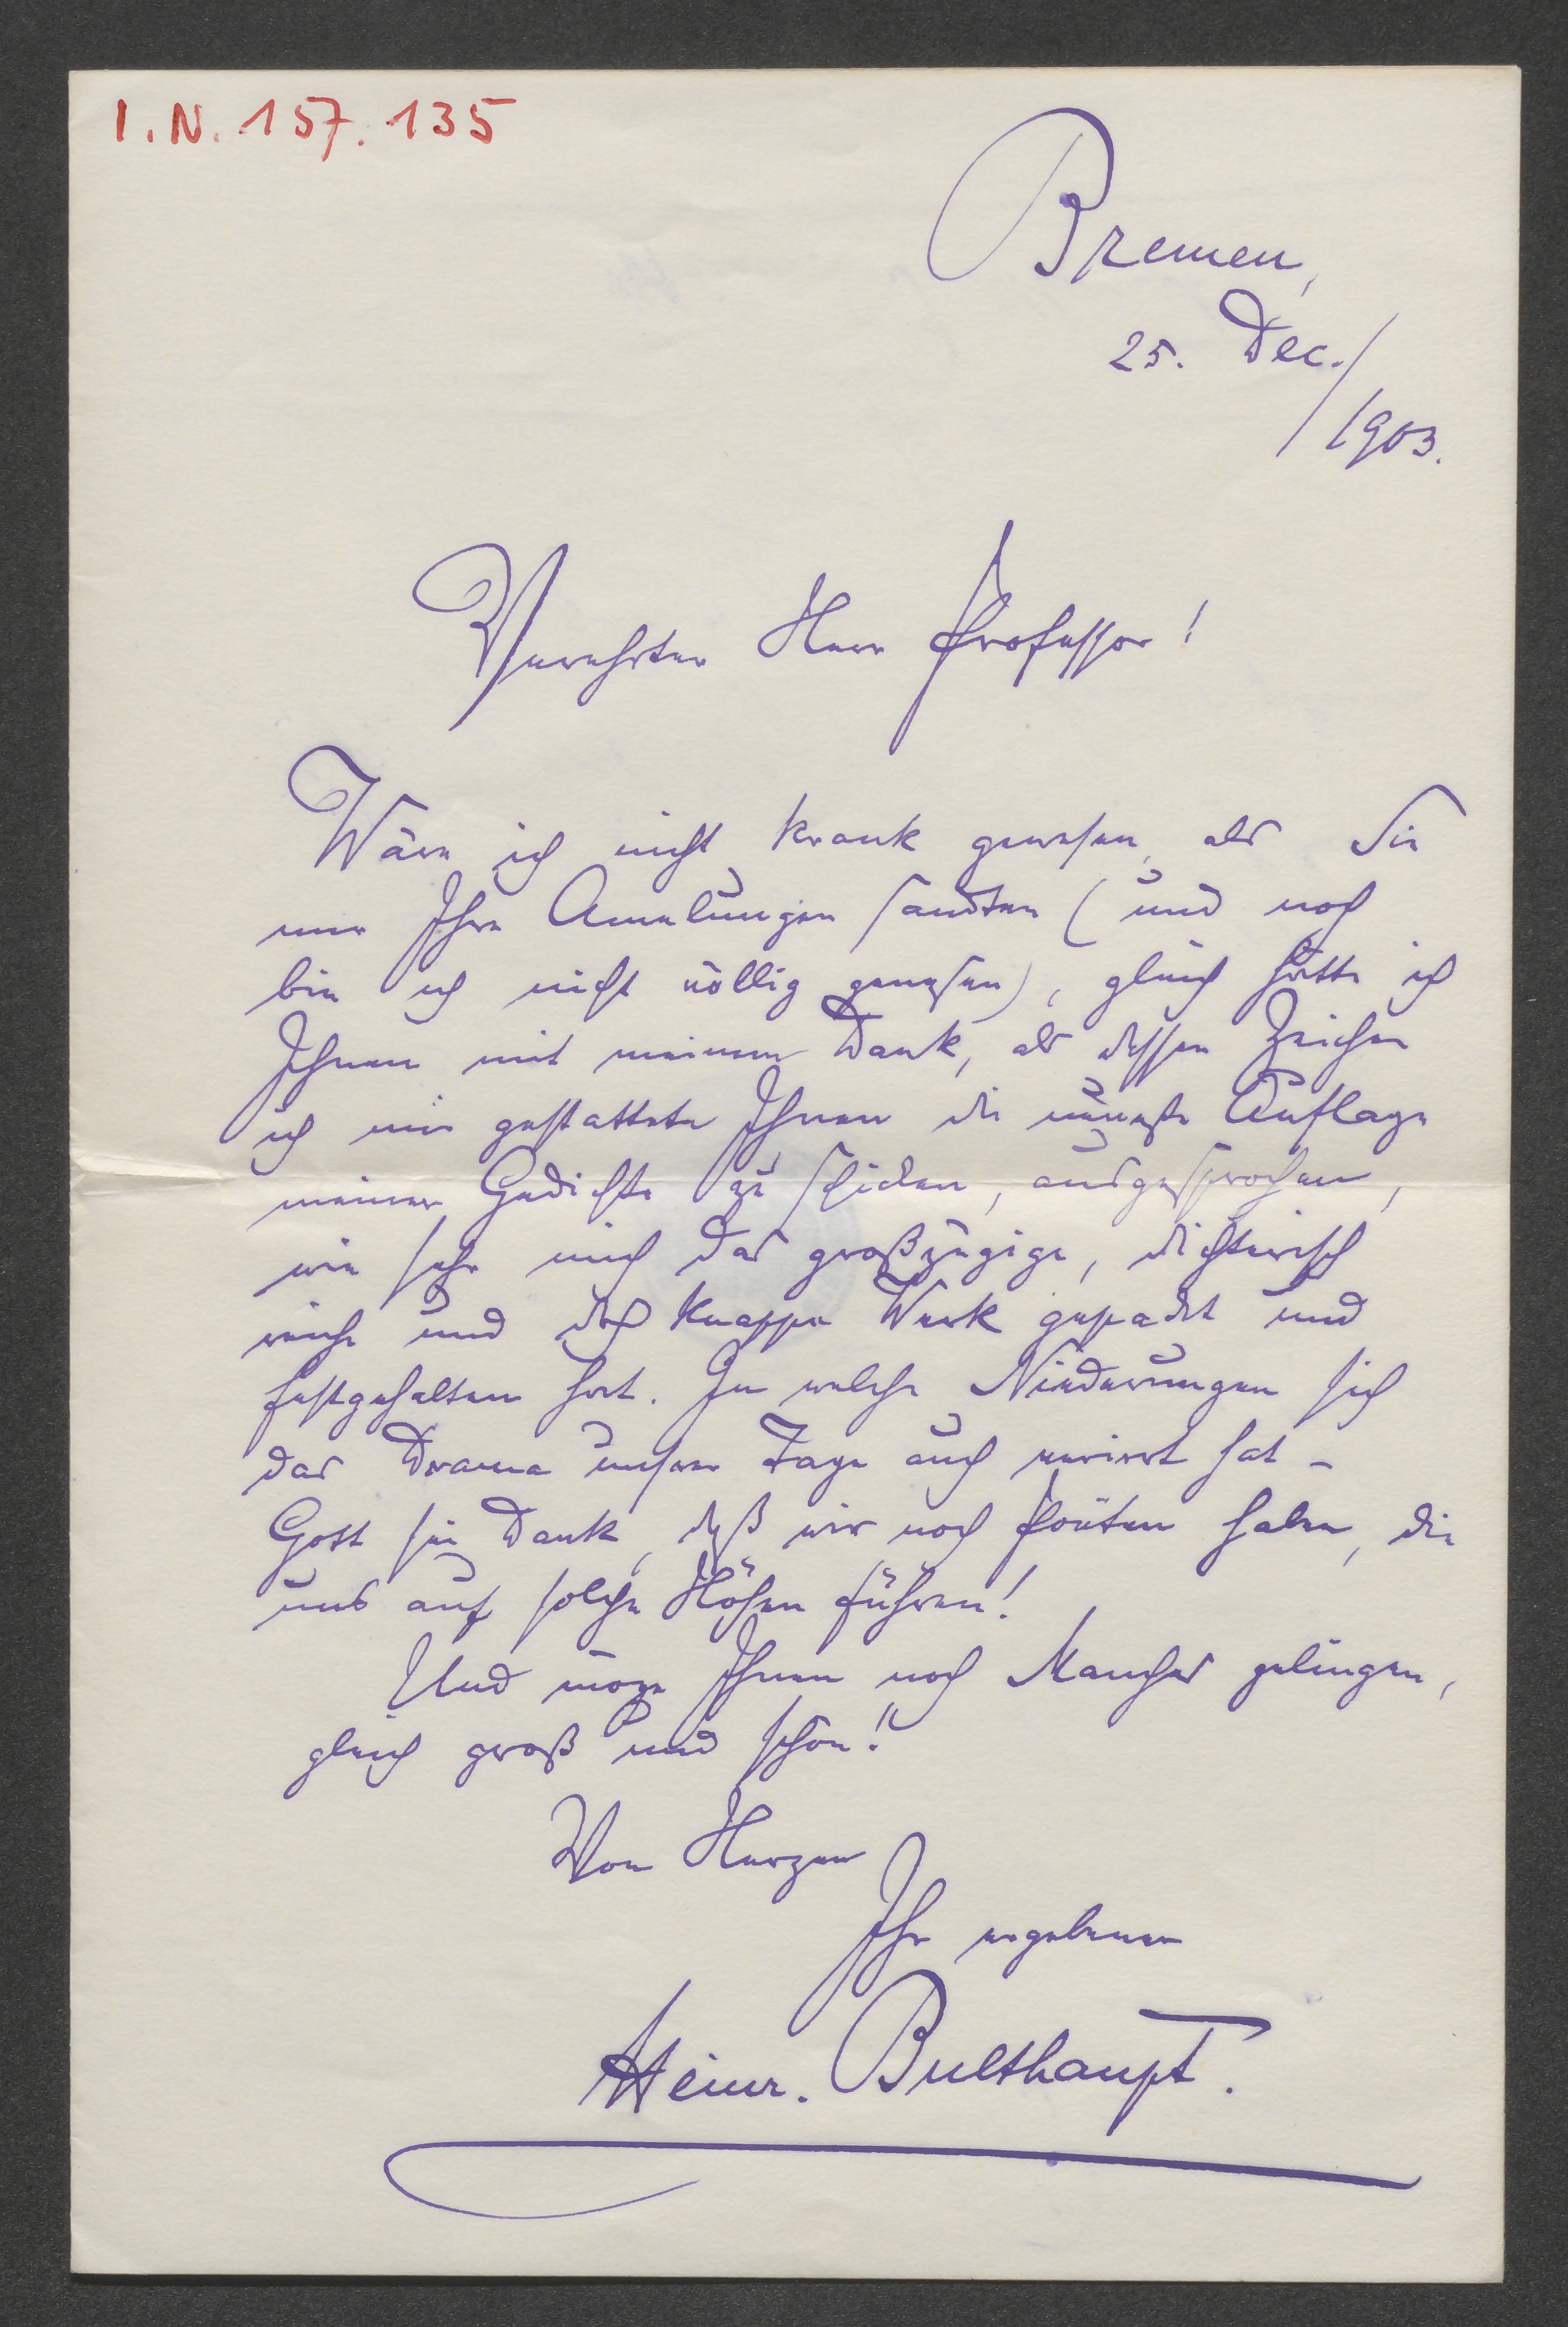 I.N. 157.135
Bremen,
25. Dec./
1903.
Verehrter Herr Professor!
Wäre ich nicht krank gewesen, als Sie
mir Ihre Amelungen sandten (und noch
bin ich nicht völlig genesen), gleich hätte ich
Ihnen mit meinem Dank, als dessen Zeichen
ich mir gestattete Ihnen die neueste Auflage
meiner Gedichte zu schicken, ausgesprochen,
wie sehr mich das großzügige, dichterisch
reiche und doch knappe Werk gepackt und
festgehalten hat. In welche Niederungen sich
das Drama unserer Tage auch verirrt hat –
Gott sei Dank, daß wir noch Poëten haben, die
uns auf solche Höhen führen!
Und möge Ihnen noch Manches gelingen,
gleich groß und schön!
Von Herzen
Ihr ergebener
Heinr. Bulthaupt.